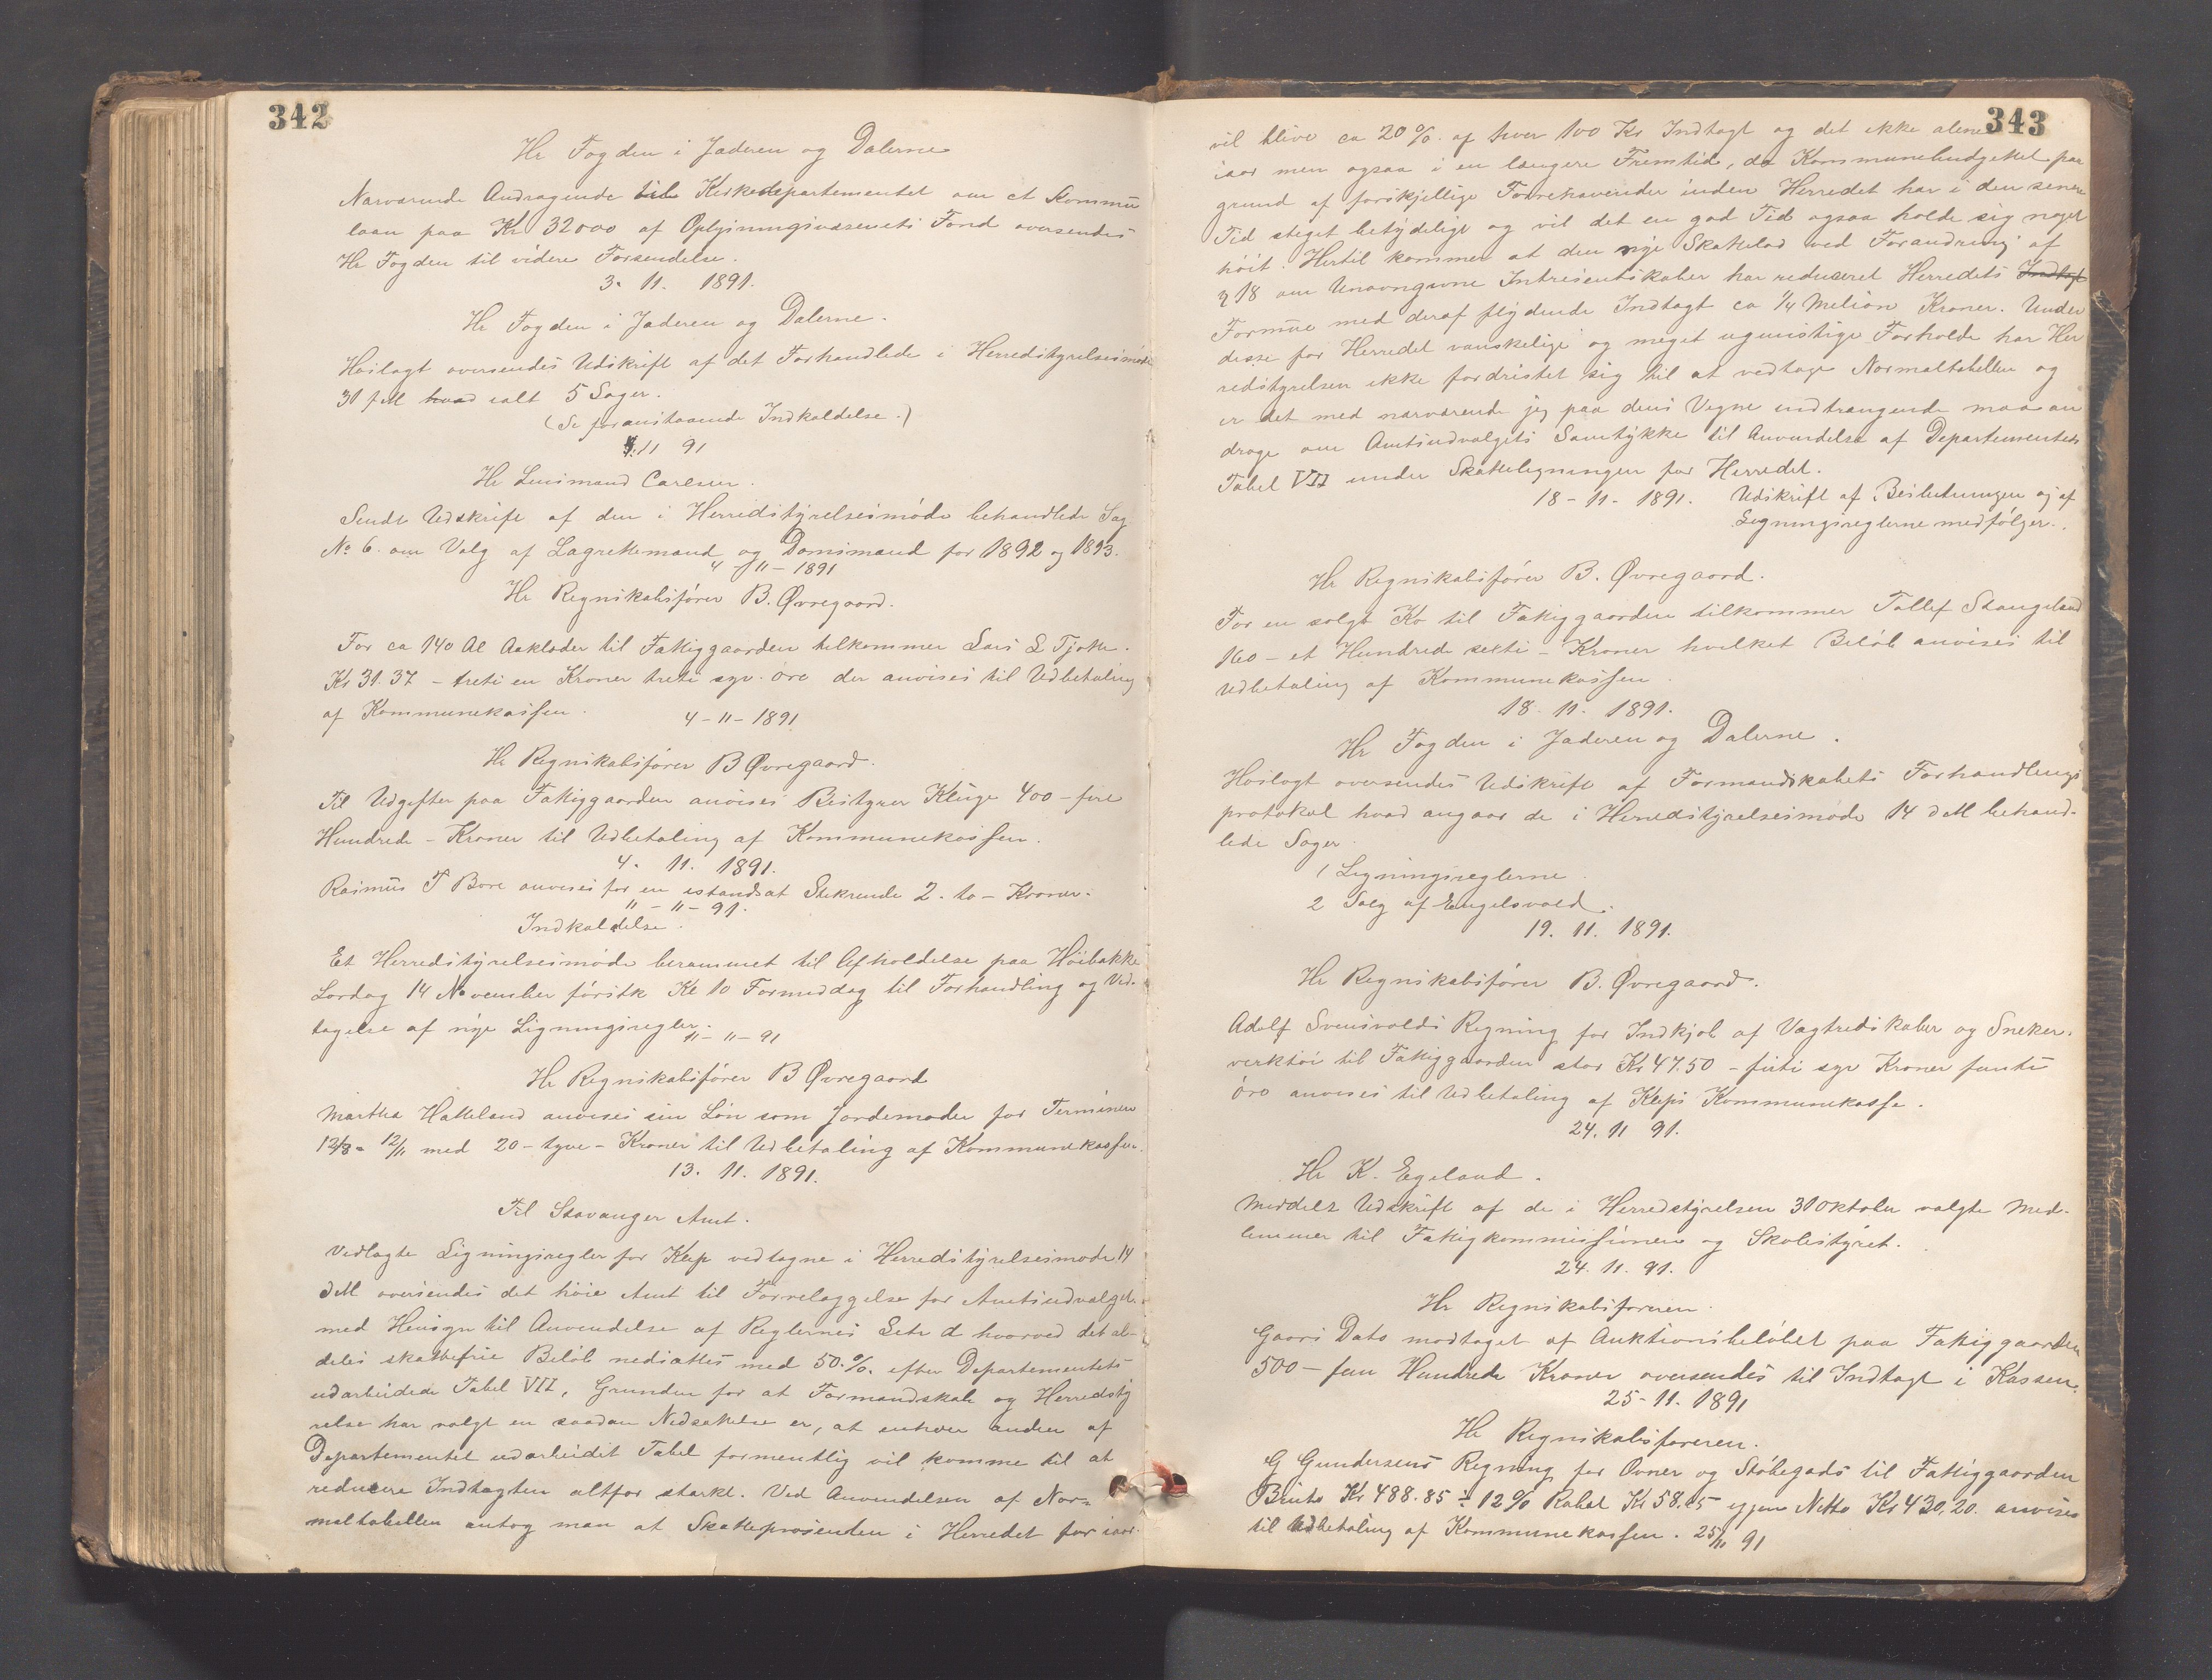 342
Hr Fogden i Jæderen og Dalerne
Nærværende Andragende til Kirkedepartementet om et Kommu
laan paa Kr 32000 af Oplysningsvæsenets Fond oversendes
Hr Fogden til videre Forsendelse.
3. 11. 1891.
Hr Fogden i Jæderen og Dalerne.
Hoslagt oversendes Udskrift af det Forhandlede i Herredstyrelsesmøde
31 f M hvad ialt 5 Sager.
(Se foranstaaende Indkaldelse.)
4. 11 91
Hr Lensmand Carlsen.
Sendt Udskrift af den i Herredstyrelsesmøde behandlede Sag
No 6. om Valg af Lagrettemænd og Domsmænd for 1892 og 1893.
4 - 11 - 1891
Hr Regnskabsfører B. Øvregaard.
For ca 140 Al Aaklæder til Fattiggaarden tilkommer Lars L Tjøtta.
Kr 31.37 - treti en Kroner treti syv øre der anvises til Udbetaling
af Kommunekassen.
4 - 11 - 1891
Hr Regnskabsfører B Øvregaard.
Til Udgifter paa Fattiggaarden anvises Bestyrer Kluge 400 - fire
Hundrede - Kroner til Udbetaling af Kommunekassen.
4. 11. 1891.
Rasmus T Bore anvises for en istandsat Stikrende 2. to - Kroner.
" - " - 91.
Indkaldelse.
Et Herredstyrelsesmøde berammet til Afholdelse paa Høibakke
Lørdag 14 November førstk Kl 10 Formiddag til Forhandling og Ved-
tagelse af nye Ligningsregler.
11 - 11 - 91
Hr Regnskabsfører B Øvregaard
Martha Hatteland anvises sin Løn som Jordemoder for Terminen
12/8 - 12/11 med 20 - tyve - Kroner til Udbetaling af Kommunekassen.
13. 11. 1891.
Til Stavanger Amt.
Vedlagte Ligningsregler for Klep vedtagne i Herredstyrelsesmøde 14
d M oversendes det høie Amt til Forrelæggelse for Amtsudvalget
med Hensyn til Anvendelse af Reglernes Litr d hvorved det al-
deles skattefrie Beløb nedsættes med 50.%. efter Departementets
udarbeidede Tabel VII, Grunden for at Formandskab og Herredsty
relse har valgt en saadan Nedsættelse er, at enhver anden af
Departementet udarbeidet Tabel formentlig vil komme til at
reducere Indtægten altfor stærkt. Ved Anvendelsen af Nor=
maltabellen antog man at Skatteprosenten i Herredet for iaar
343
vil blive ca 20 %. af hver 100 Kr Indtægt og det ikke alene
iaar men ogsaa i en længere Fremtid, da Kommunebudgettet paa
grund af forskjellige Foretehavender inden Herredet har i den senere
Tid steget betydelige og vil det en god Tid ogsaa holde sig noget
høit. Hertil kommer at den nye Skattelov ved Forandring af
§ 18 om Unavngivne Intresentskaber har reduceret Herredets Indtægt
Formue med deraf flydende Indtægt ca 1/4 Melion Kroner. Under
disse for Herredet vanskelige og meget ugunstige Forholde har Her
redstyrelsen ikke fordristet sig til at vedtage Normaltabellen og
er det med nærværende jeg paa dens Vegne indtrængende maa an
drage om Amtsudvalgets Samtykke til Anvendelse af Departementets
Tabel VII under Skatteligningen for Herredet.
18 - 11 - 1891. Udskrift af Beslutningen og af
Ligningsreglerne medfølger.
Hr Regnskabsfører B. Øvregaard.
For en solgt Ko til Fattiggaarden tilkommer Tollef Stangeland
160 - et Hundrede seksti - Kroner hvilket Beløb anvises til
Udbetaling af Kommunekassen.
18. 11. 1891.
Hr Fogden i Jæderen og Dalerne.
Hoslagt oversendes Udskrift af Formandskabets Forhandlings
protokol hvad angaar de i Herredstyrelsesmøde 14 d M behand-
lede Sager.
1 Ligningsreglerne.
2 Salg af Engelsvold.
19. 11. 1891.
Hr Regnskabsfører B. Øvregaard.
Adolf Svensvolds Regning for Indkjøb af Vægtredskaber og Sneker-
verktøi til Fattiggaarden stor Kr 47.50 - firti syv Kroner femti
øre anvises til Udbetaling af Kleps Kommunekasse.
24. 11 91.
Hr K. Egeland.
Meddelt Udskrift af de i Herredstyrelsen 31 Oktober valgte Med-
lemmer til Fattigkommissionen og Skolestyret.
24. 11. 91.
Hr Regnskabsføreren.
Gaars Dato modtaget af Auktionsbeløbet paa Fattiggaarden
500 - fem Hundrede Kroner oversendes til Indtægt i Kassen.
25 - 11. 1891
Hr Regnskabsføreren.
G Gundersens Regning for Ovner og Støbegods til Fattiggaarden
Brutto Kr 488.85 ÷ 12% Rabat Kr 58.65 igjen Netto Kr 430,20. anvises
til Udbetaling af Kommunekassen. 25/11 91